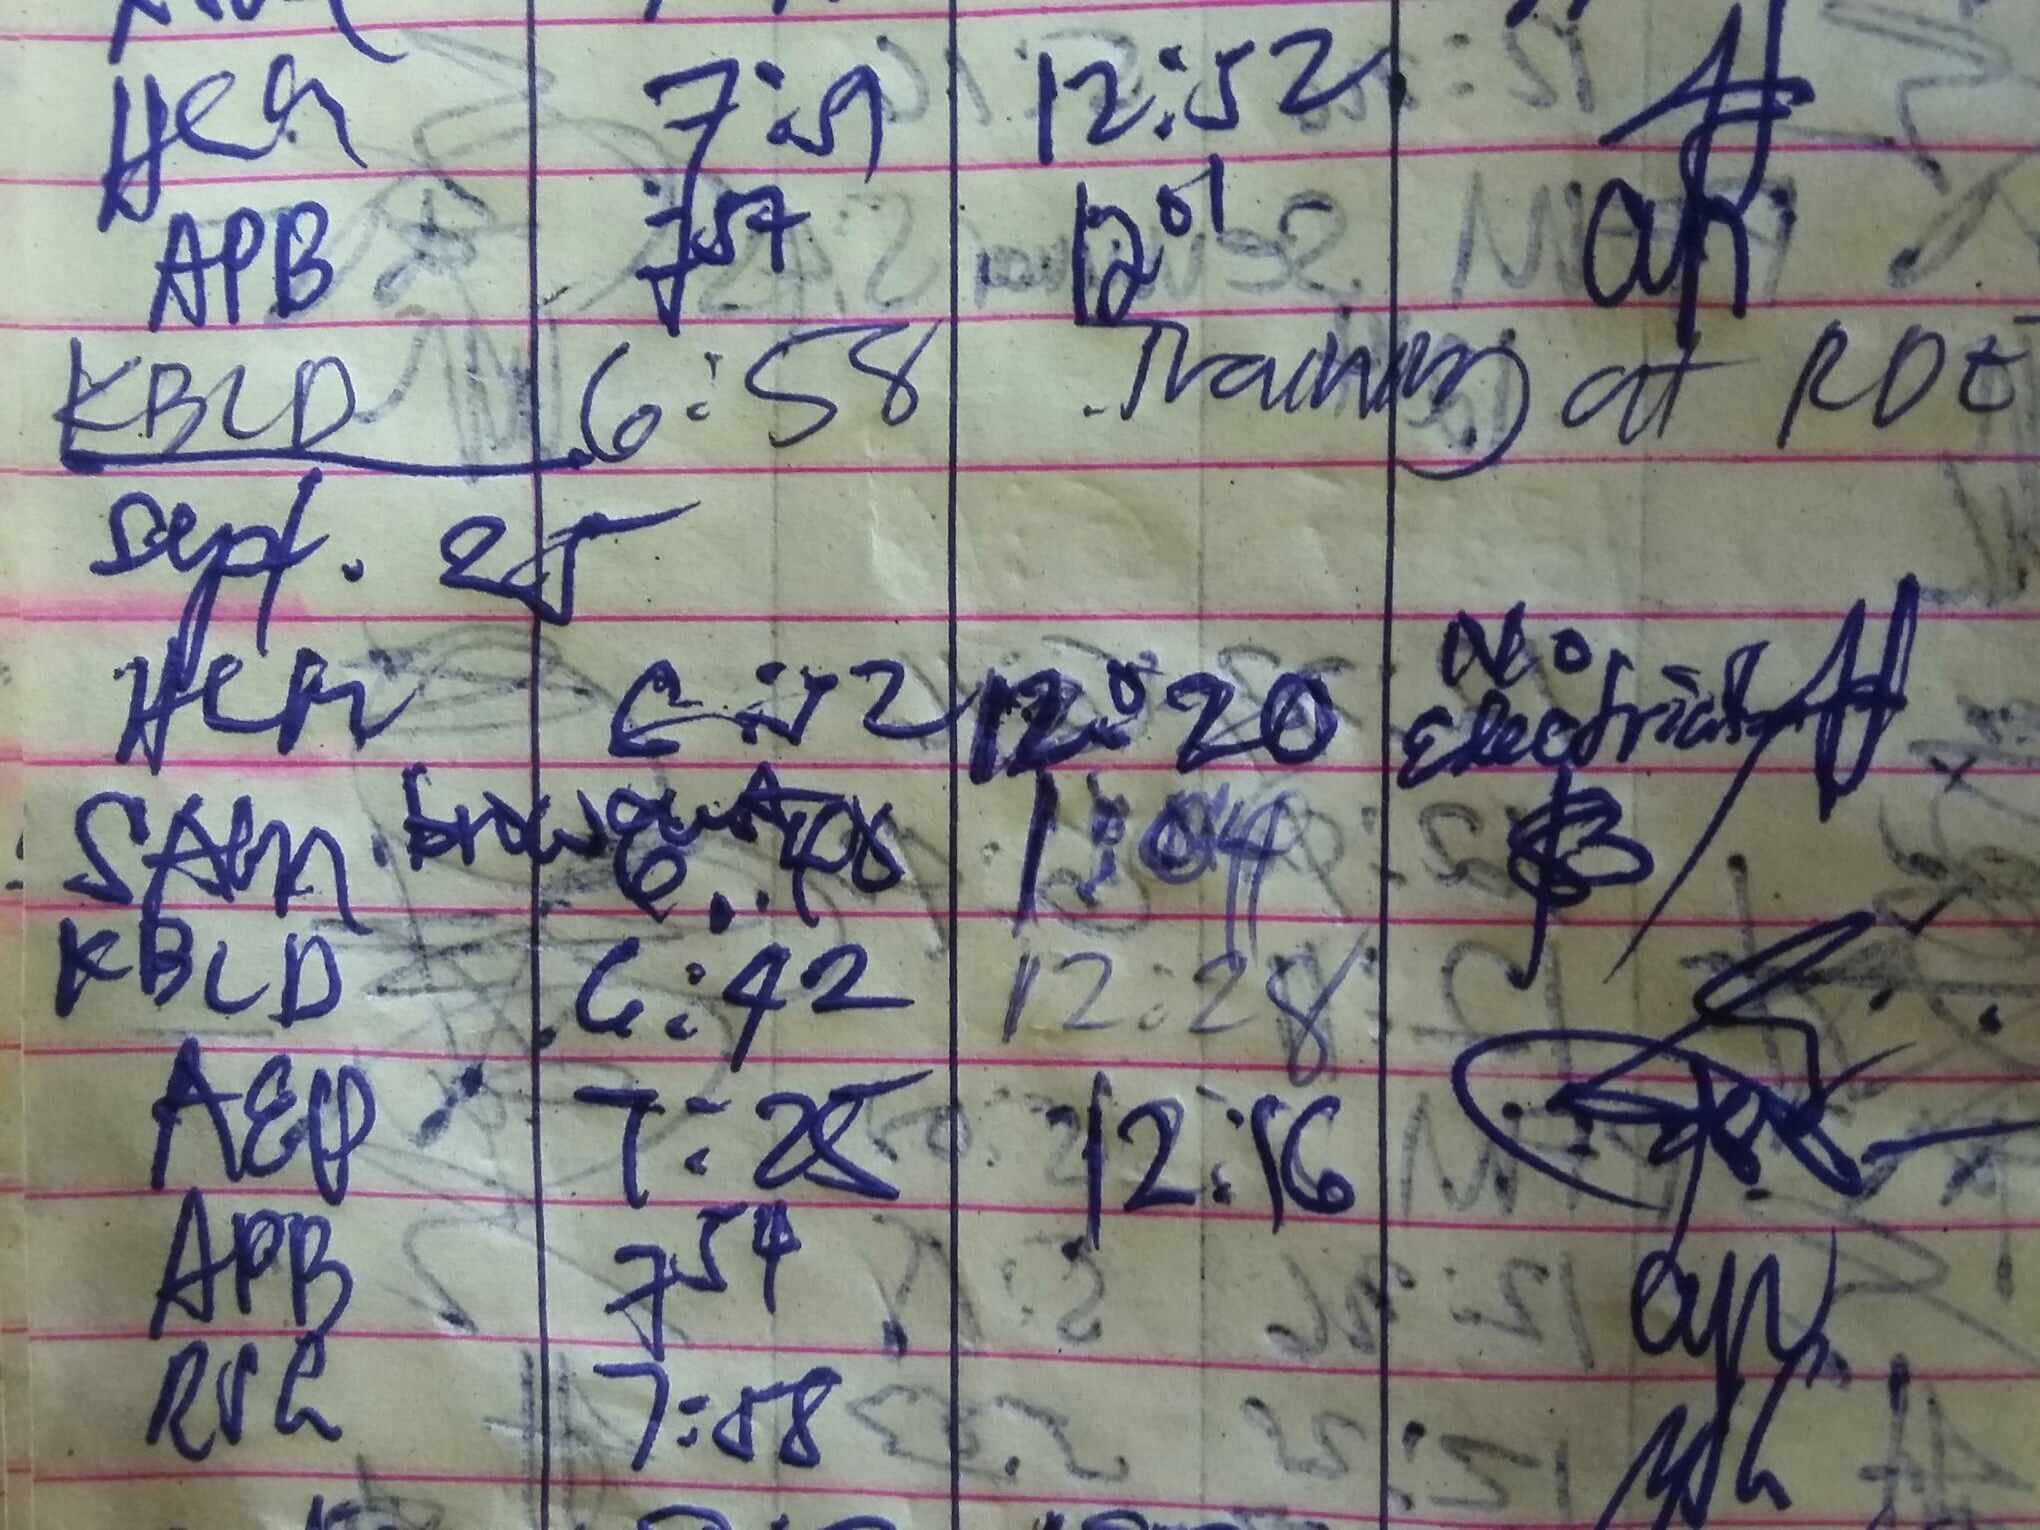 7:59 12:52
APB 7 57 12 01
KBLD 6:58 Training at RDE
Sept. 25
6:52 12:20 No Electricity
brownout
SAM 6:48 1:04
KBLD 6:42 12:28
AEP 7:25 12:16
APB 7 54
RSG 7:58